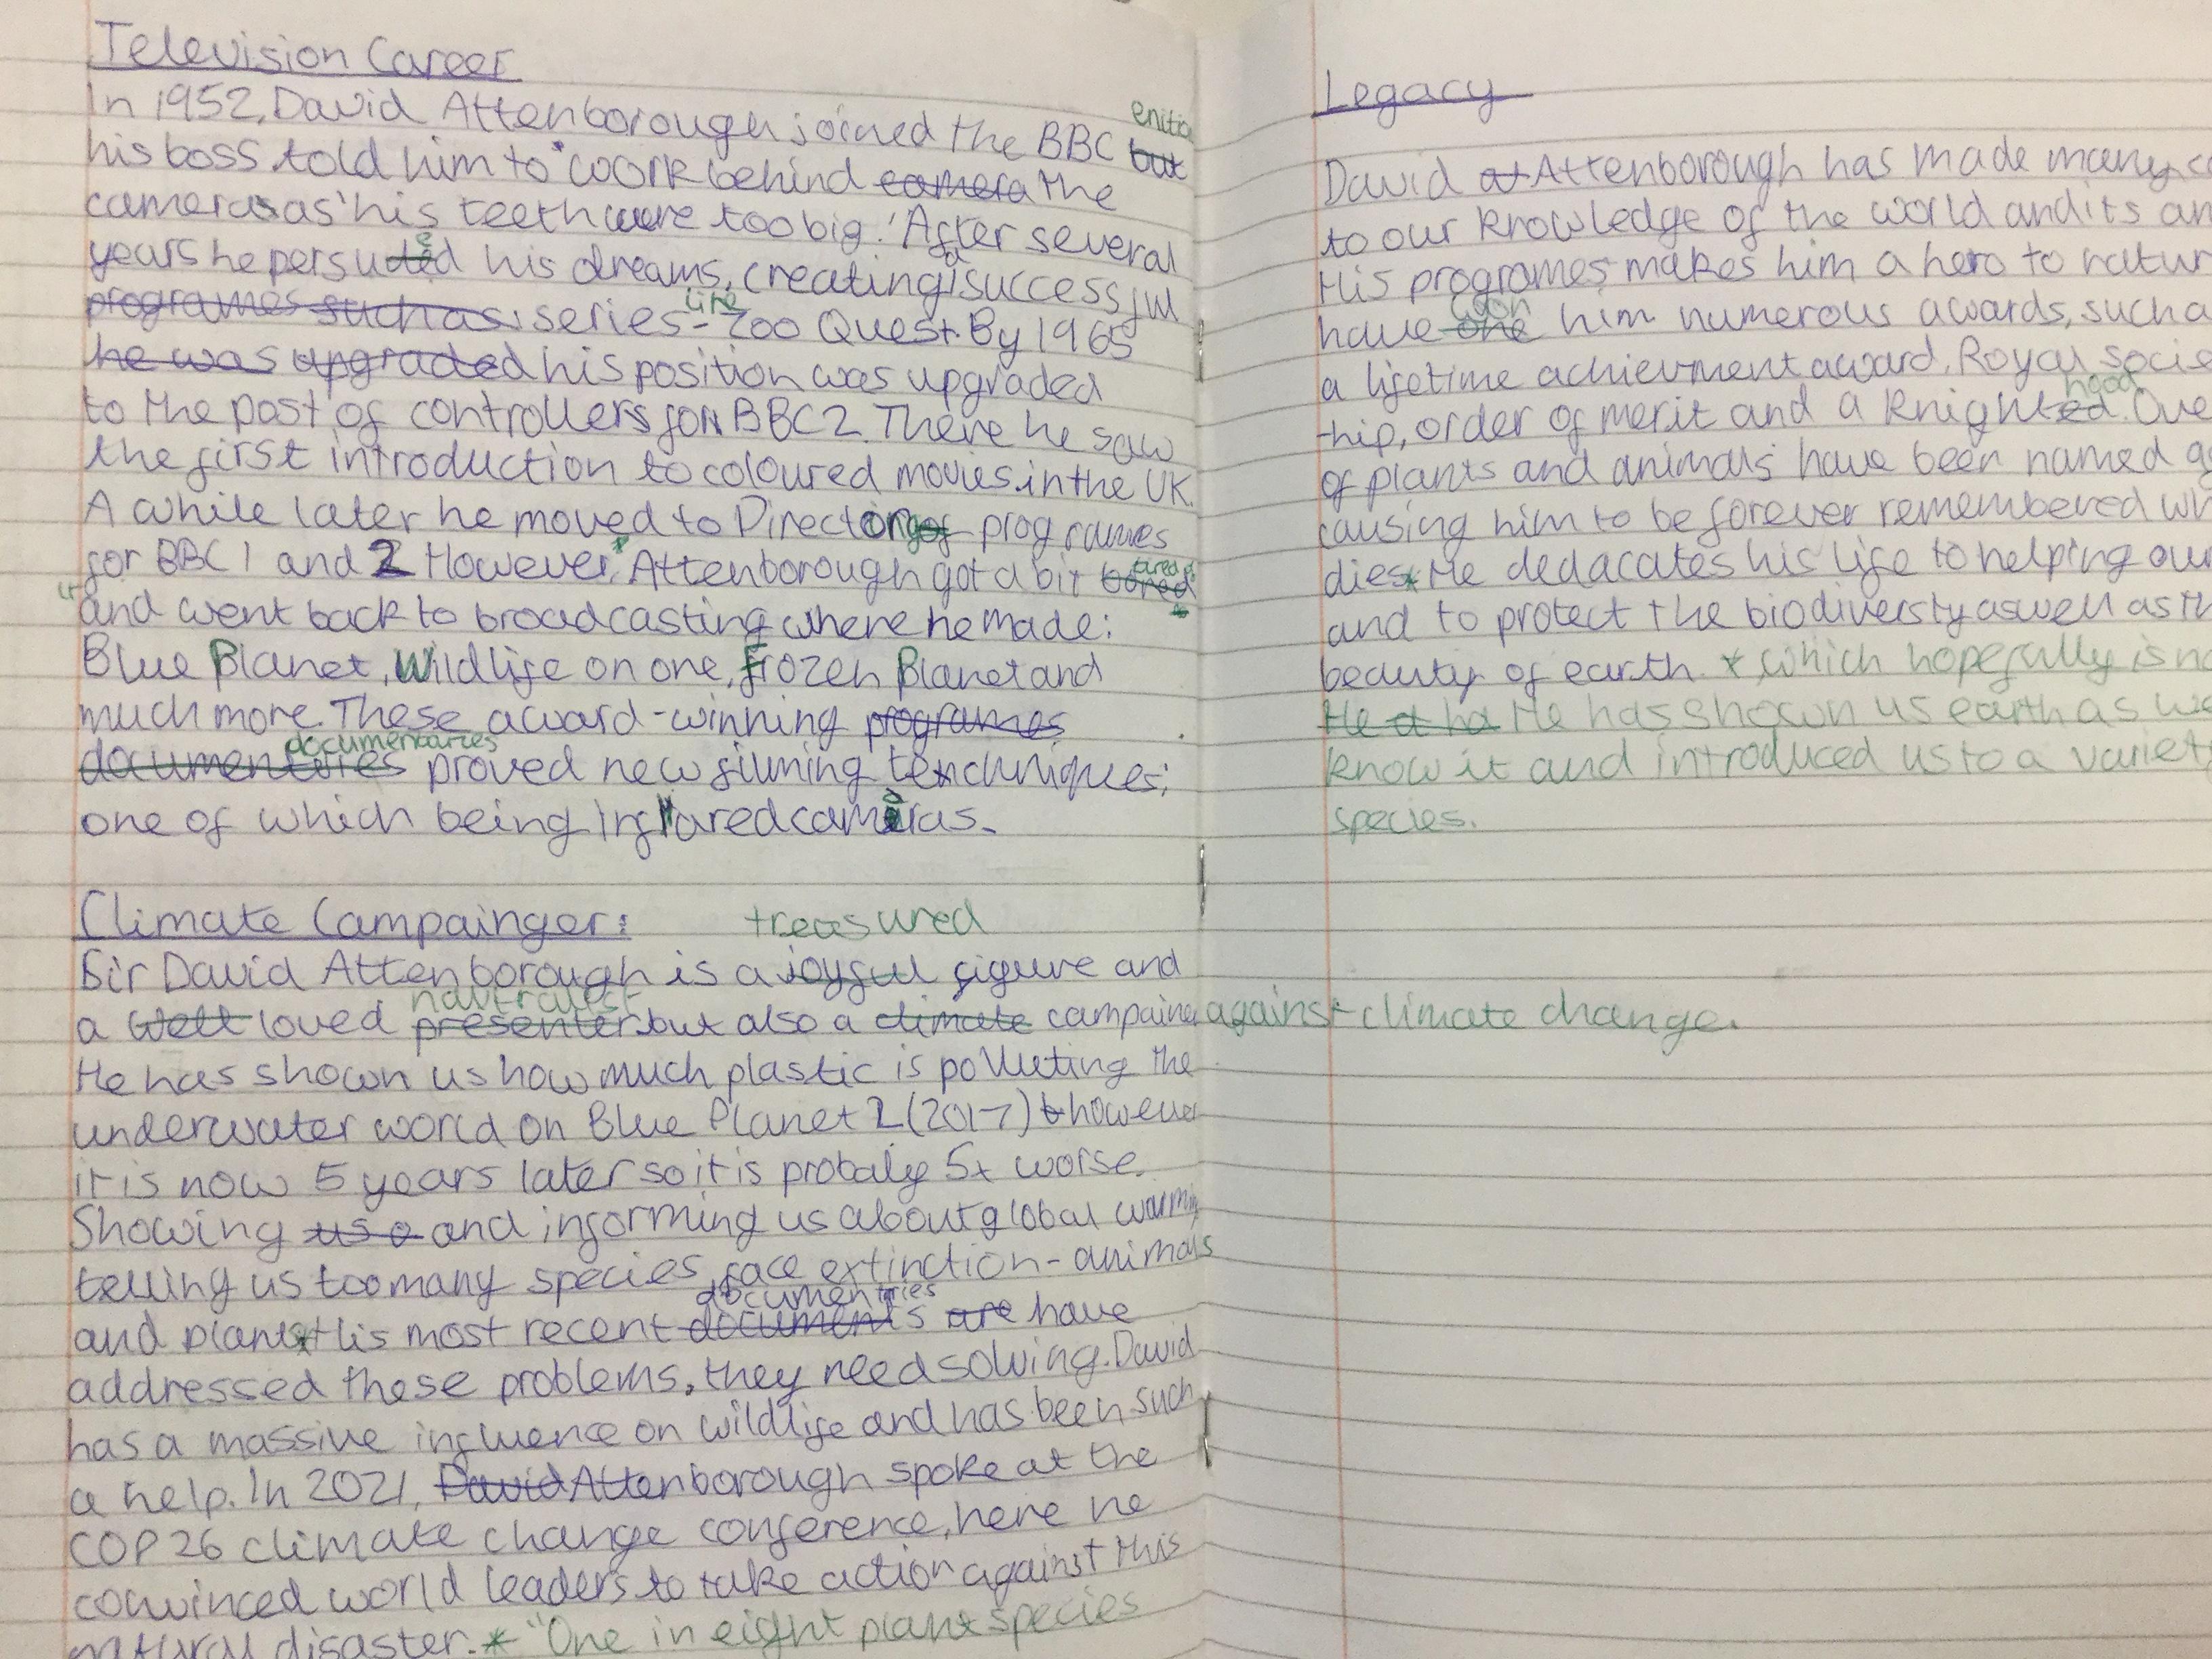 Television Career
In 1952, David Attenborough joined the BBC but
his boss told him to work behind camera the
cameras as 'his teeth were too big.' After several
years he persued his dreams, creating a successful
programes such as series - like Zoo Quest. By 1965
he was upgraded his position was upgraded
to the post of controllers for BBC 2. There he saw
the first introduction to coloured movies in the UK.
A while later he moved to Director of programes
for BBC 1 and 2 However, Attenborough got a bit bored tired
and went back to broadcasting where he made:
Blue Planet, Wildlife on one, Frozen Planet and
much more. These award-winning programes
documentaries
proved new filming techniques;
one of which being infrared cameras.
Climate Campainger:
treasured
Sir David Attenborough is a joyful figure and
a well loved presenter but also a climate campaine against climate change.
He has shown us how much plastic is polluting the
underwater world on Blue Planet 2 (2017) however
it is now 5 years later so it is probaly 5x worse.
Showing us a and informing us about global warming
telling us too many species face extinction - animals
documentries
and plants His most recent documents are have
addressed these problems, they need solving. David
has a massive influence on wildlife and has been such
a help. In 2021, David Attenborough spoke at the
COP 26 climate change conference, here he
convinced world leaders to take action against this
natural disaster. * "One in eight plant species
Legacy
David at Attenborough has made many
to our knowledge of the world and its an
His programes makes him a hero to natur
have one won him numerous awards, such a
a lifetime achievment award, Royal Socie
hood
hip, order of merit and a knighted. Ove
of plants and animals have been named
causing him to be forever remembered wh
dies * He dedacates his life to helping our
and to protect the biodiversty aswell as th
beauty of earth. * which hopefully is no
He a ha He has shown us earth as we
know it and introduced us to a variety
species.